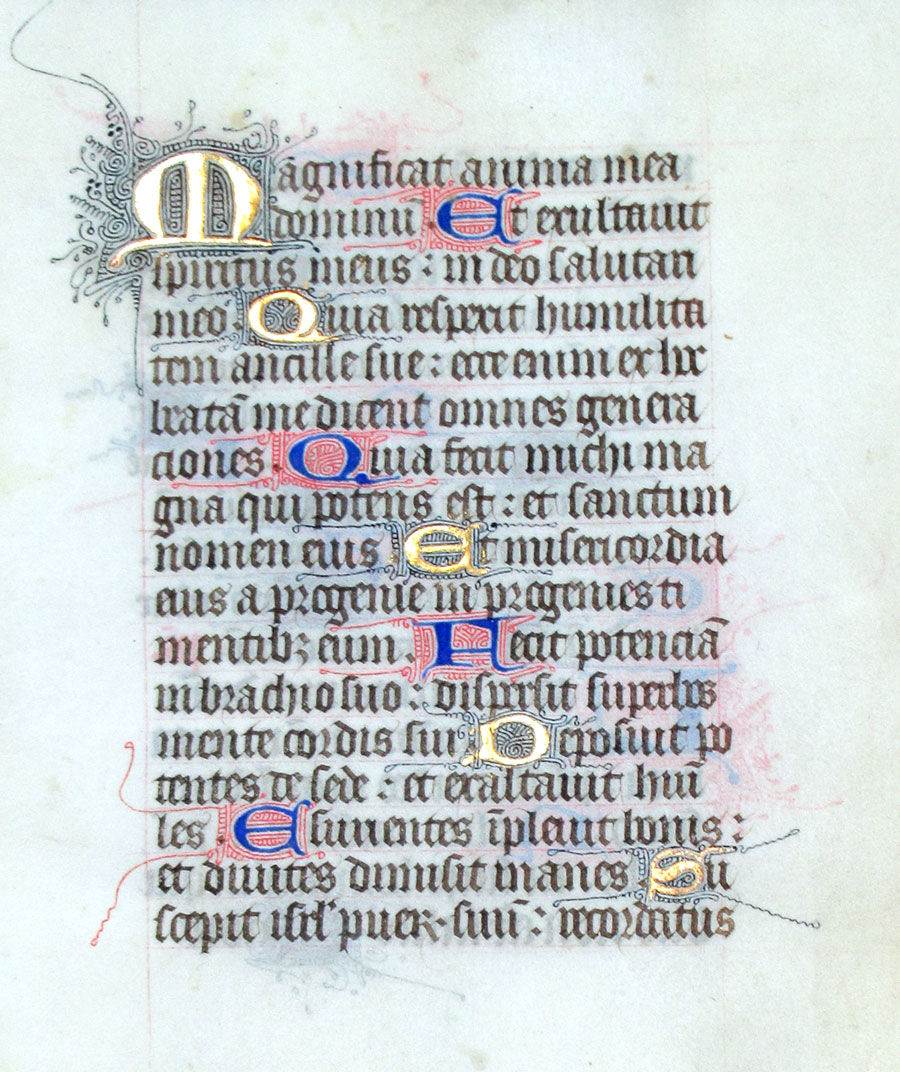 Magnificat anima mea
dominū Et exultauit
spiritus meus : in deo salutari
meo. Quia respexit humilita
tem ancille sue : ecce enim ex hoc
beatā me dicent omnes genera
ciones. Quia fecit michi ma
gna qui potens est : et sanctum
nomen eius Et misericordia
eius a progenie in progenies ti
mentibꝫ eum. Fecit potenciā
in brachio suo : dispersit superbos
mente cordis sui Deposuit po
tentes de sede : et exaltauit huī
les Esurientes īpleuit bonis :
et diuites dimisit inanes Su
scepit isrl' puer suū : recordatus